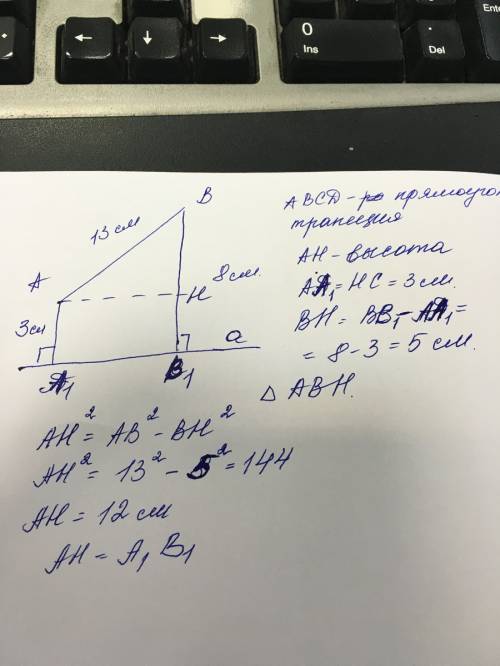 0
Ins
.
Del
Enter
B
13 см
A
H
8 см.
3 см
a
A₁
B₁
ABCD - прямоугол
трапеция
AH - высота
AA₁ = HC = 3 см.
BH = BB₁ - AA₁ =
= 8 - 3 = 5 см.
△ ABH.
AH² = AB² - BH²
AH² = 13² - 5² = 144
AH = 12 см
AH = A₁ B₁